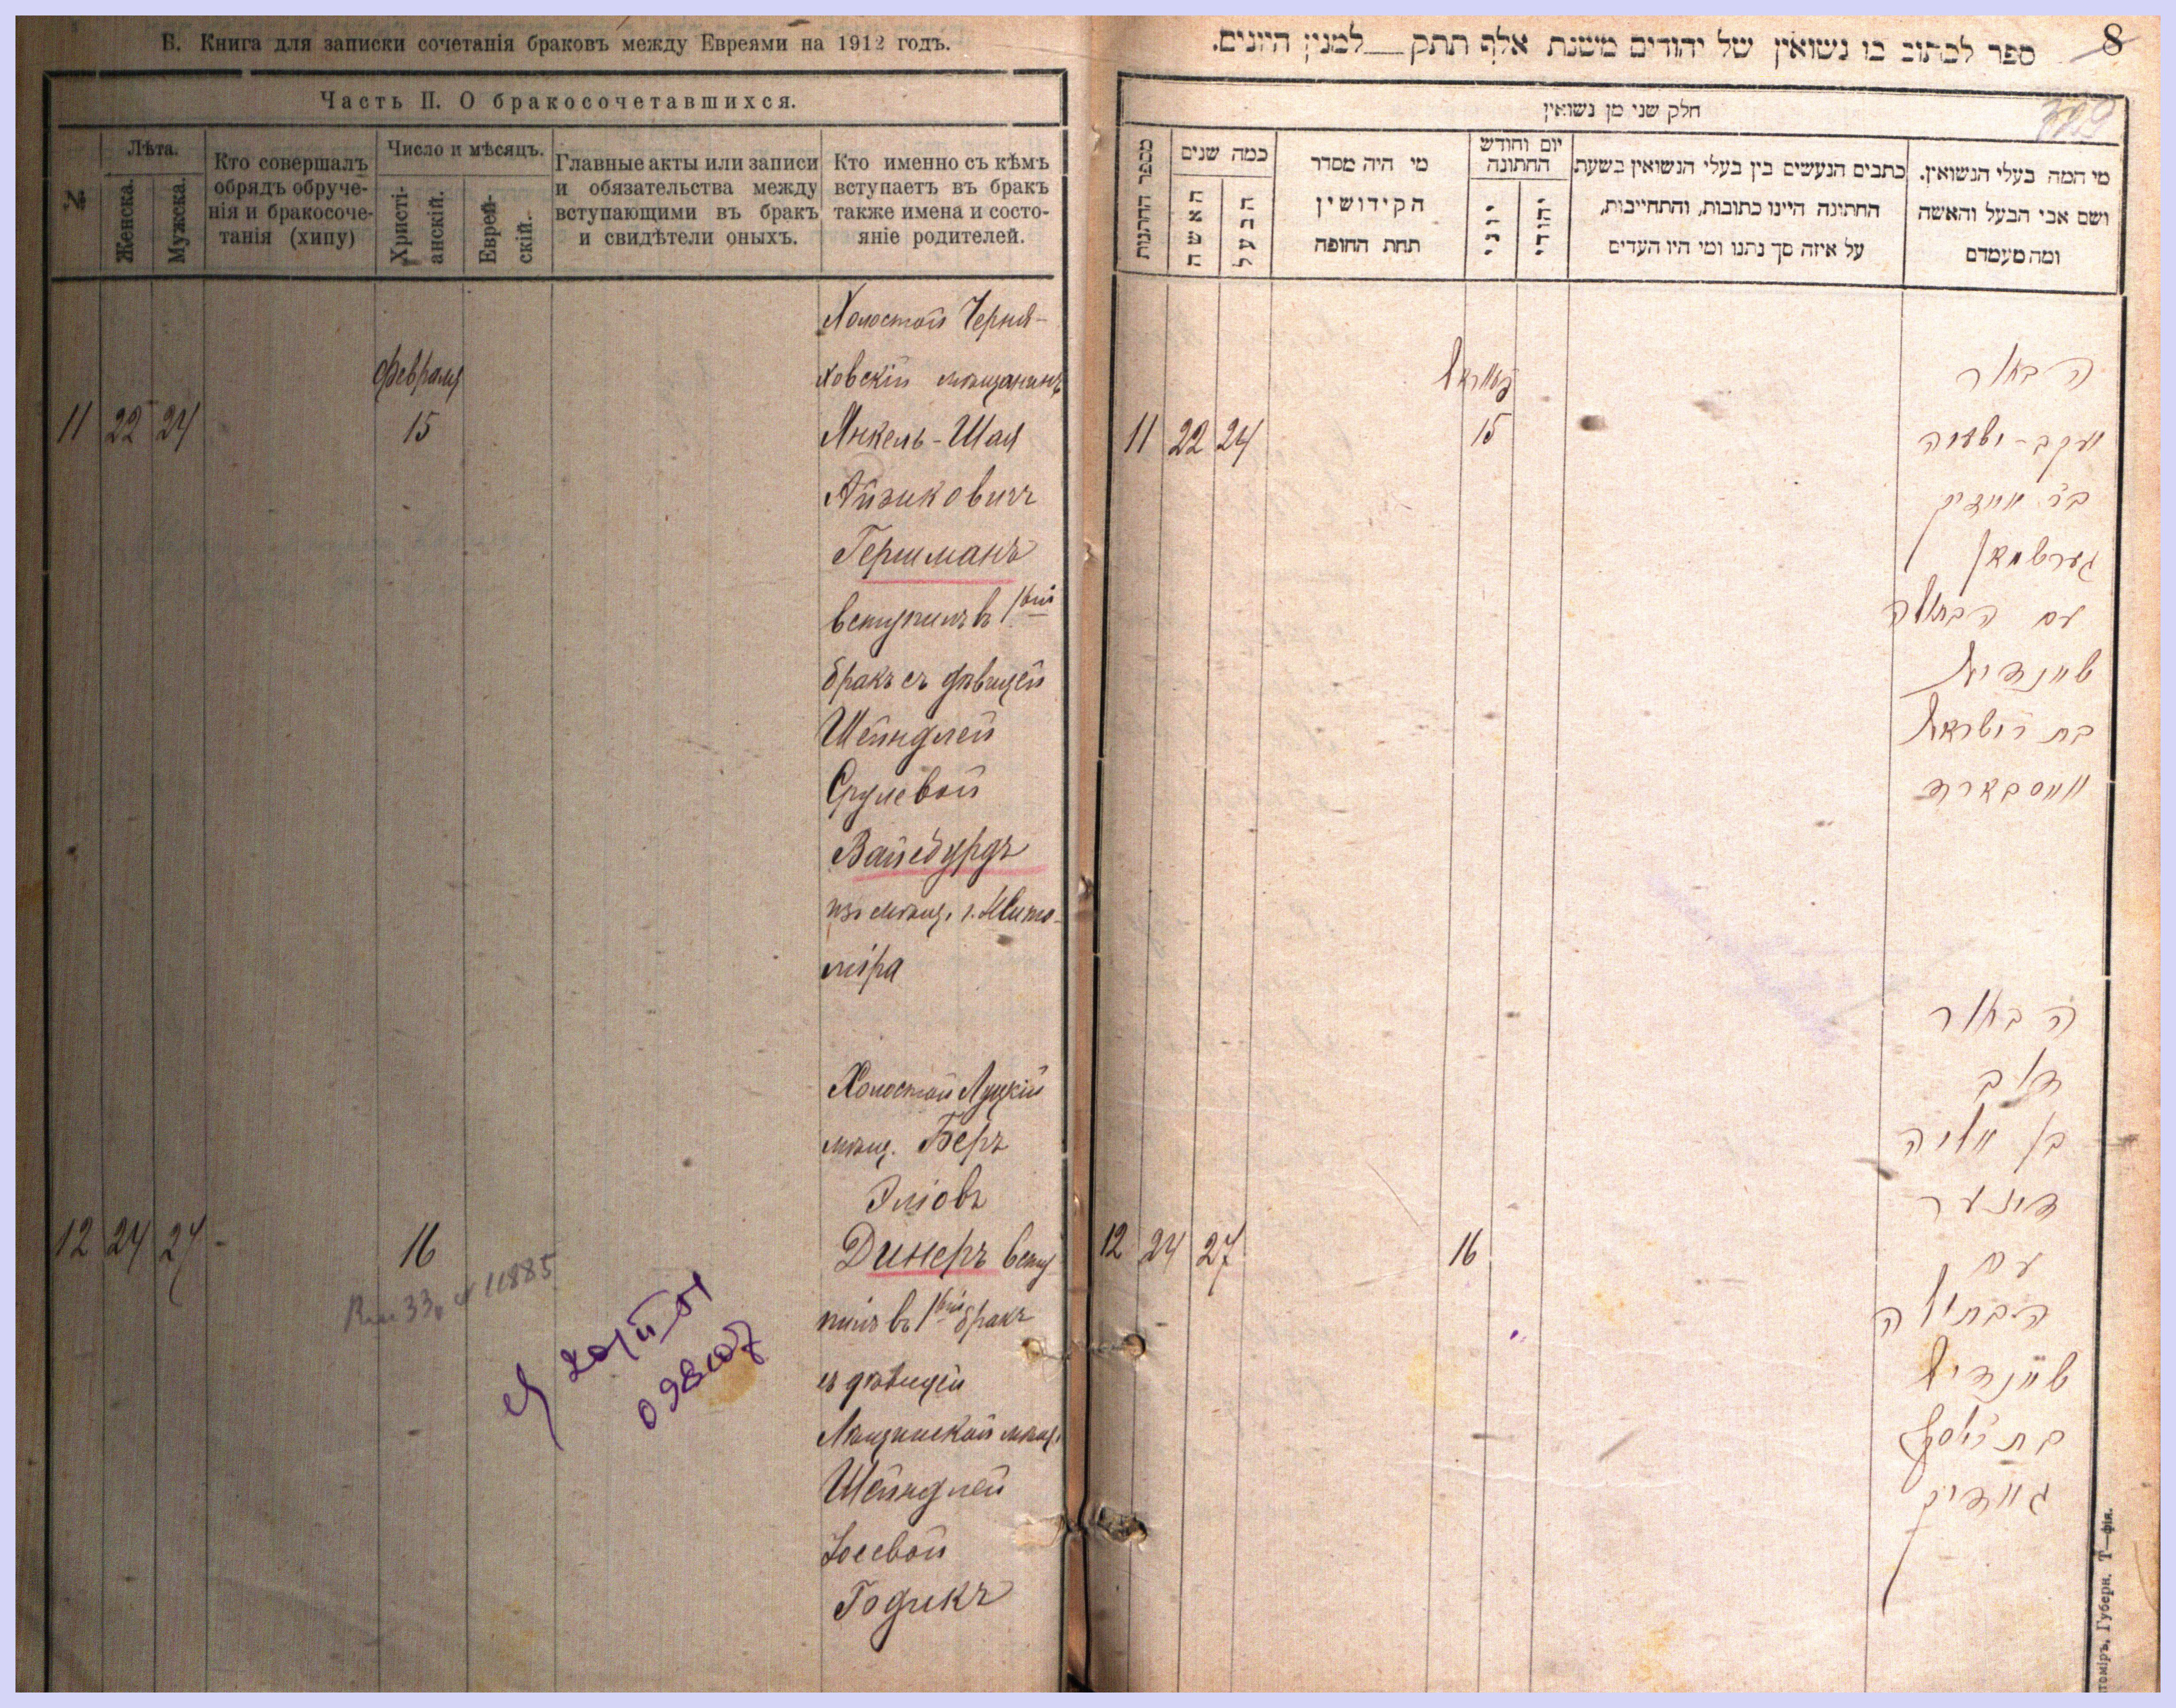 Б. Книга для записки сочетанія браковъ между Евреями на 1912 годъ.
Часть II. О бракосочетавшихся.
№
Лѣта.
Женска.
Мужска.
Кто совершалъ
обрядъ обруче-
нія и бракосоче-
танія (хипу)
Число и мѣсяцъ.
Христі-
анскій.
Еврей-
скій.
Главные акты или записи
и обязательства между
вступающими въ бракъ
и свидѣтели оныхъ.
Кто именно съ кѣмъ
вступаетъ въ бракъ
также имена и состо-
яніе родителей.
Холостой Черня-
ховскій мѣщанинъ
февраля
11 22 24 15 Янкель-Шая
Айзиковичъ
Гершманъ
вступилъ в 1вый
бракъ съ дѣвицей
Шейндлей
Срулевой
Вайсбурдъ
изъ мѣщ. г. Жито-
міра
Холостой Луцкій
мѣщ. Беръ
Эліовъ
12 24 27 16 Динеръ всту
пилъ въ 1вый бракъ
съ дѣвицей
мѣщ.
Шейндлей
Іосевой
Годикъ
11885
098107
8
ספר לכתוב בו נשואין של יהודים משנת אלף תתק למנין היונים.
חלק שני מן נשואין
מספר החתנות
כמה שנים
האשה
הבעל
מי היה מסדר
הקידושין
תחת החופה
יום וחודש
החתונה
יוני
יהודי
כתבים הנעשים בין בעלי הנשואין בשעת
החתונה היינו כתובות, והתחייבות,
על איזה סך נתנו ומי היו העדים
מי המה בעלי הנשואין.
ושם אבי הבעל והאשה
ומה מעמדם
הבחור
11 22 24 15 יעקב-ישעיה
בר אייזיק
גערשמאן
עם הבתולה
שיינדיל
בת ר ישראל
ווייסבארד
הבחור
דוב
בן אליה
דינער
12 24 27 16 עם
הבתולה
שיינדיל
בת ר יוסף
גאדיק
Губерн. Т—фія.